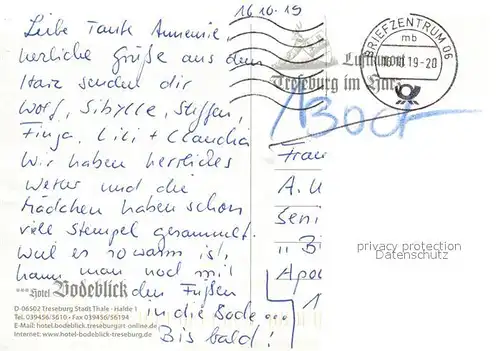 16.10.19
Liebe Tante Annemie,
herzliche Grüße aus dem
Harz senden dir
Wolf, Sibylle, Steffen,
Finja, Lili + Claudia
Wir haben herrliches
Wetter und die
Mädchen haben schon
viele Stempel gesammelt.
Weil es so warm ist,
kann man noch mit
den Füßen
in die Bode ...
Bis bald!
***Hotel Bodeblick
D-06502 Treseburg Stadt Thale · Halde 1
Tel. 039456/5610 · Fax 039456/56194
E-Mail: hotel.bodeblick.treseburg@t-online.de
Internet: www.hotel-bodeblick.de
Luftkurort
Treseburg im Harz
BRIEFZENTRUM 06
mb
19-20
Frau
A.
Seni
„ B
Apo
1
privacy protection
Datenschutz